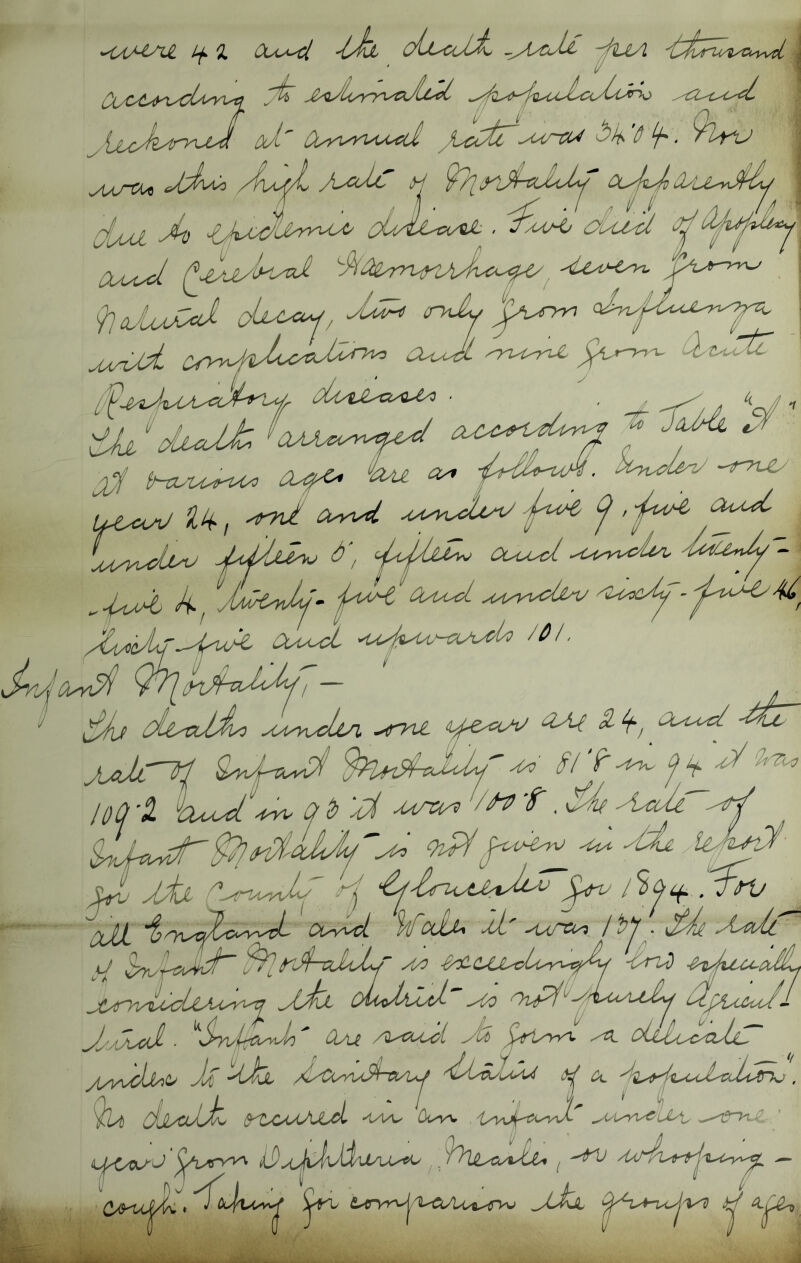 were 42 and the death-rate per thousand
according to estimated population and
reckoned at annual rate was 34·04. Nor
was this high rate of Mortality apparently
due to epidemic disease. Five died of Apoplexy
and Cerebral Haemorrhage, seven from
Natural decay, two only from Influenza
with complications and nine from Acute
Respiratory diseases.
The deaths arranged according to Table "A"
at various ages are as follows. Under one
year 24, one and under five 9, five and
under fifteen 5, fifteen and under twenty-
-five 4, twenty-five and under sixty-five 46,
sixty-five and upwards 101.
Infant Mortality, —
The deaths under one year are 24, and the
rate of Infant Mortality is 81·8 in 94 it was
109·2 and in 93 it was 100·8. The rate of
Infant Mortality is not given in the report
for the County of Gloucester for 1894. For
all England and Wales it was 137. The rate
of Infant Mortality is exceedingly low especially
considering the district is not purely Agricul-
tural. "Infants are said to form a delicate
index to the Sanitary Status of a population".
No death occured in an infant under one
year from Diphtheria, Measles, or whooping-
cough. Taking for comparison the groups of ages